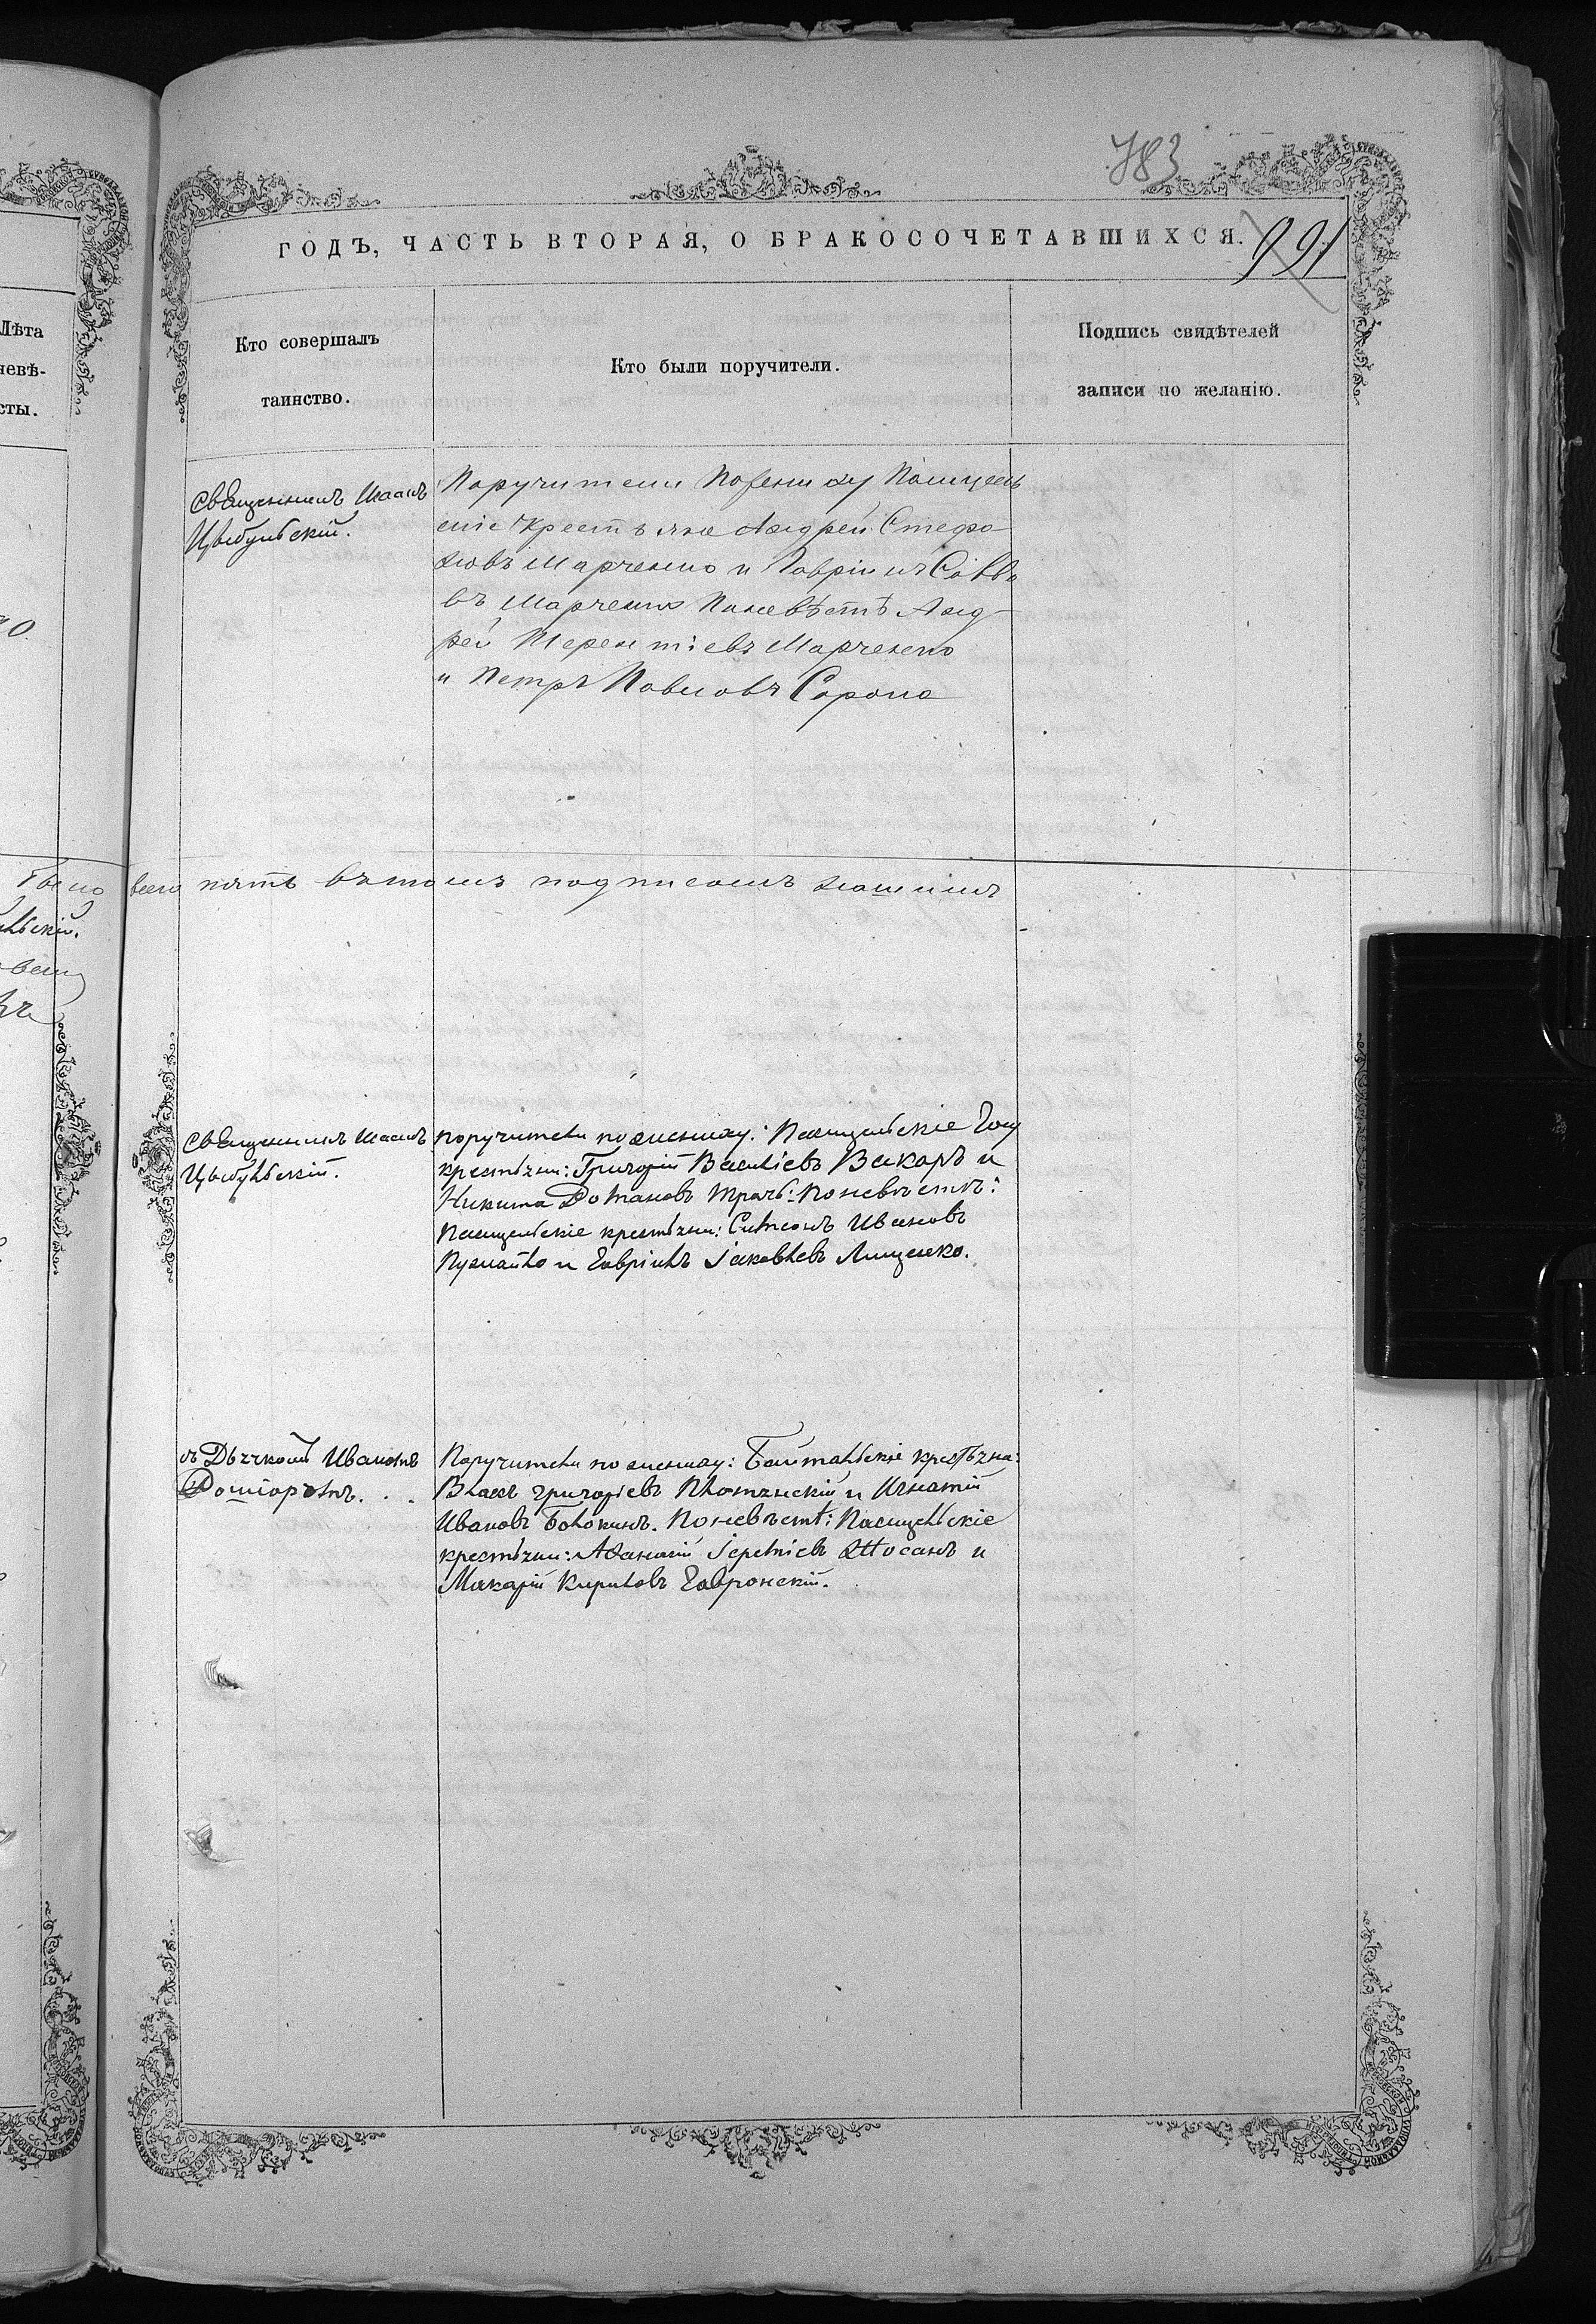 783
ГОДЪ, ЧАСТЬ ВТОРАЯ, О БРАКОСОЧЕТАВШИХСЯ.
991
Лѣта
невѣ-
сты.
Кто совершалъ
таинство.
Кто были поручители.
Подпись свидѣтелей
записи по желанію.
Священникъ Іоаннъ
Цыбульскій.
Поручители Пожениху Пасицель
скіе Крестьяне Андрей Стефа
новъ Марченко и Гавріилъ Савва
въ Марченко Поневѣстѣ Анд-
рей Терентіевъ Марченко
и Петръ Павловъ Сорока
всего пять вътомъ подписомъ нашимъ
Священникъ Іоаннъ
Цыбульскій.
поручители пожениху: Пасицельскіе Гос
крестьяни: Григорій Василіевъ Вакаръ и
Никита Романовъ Трачъ: Поневѣстѣ:
Пасицельскіе крестьяни: Симеонъ Ивановъ
Пужайло и Гавріилъ Іаковлевъ Лищенко.
съ Дьячкомъ Иваномъ
Поручители по жениху: Байтальскіе крестьяна:
Власъ Григоріевъ Плотянскій и Игнатій
Ивановъ Болокинъ. Поневѣстѣ: Пасицельскіе
крестьяни: Афанасій Іереміевъ и
Макарій Кириловъ Гавронскій.